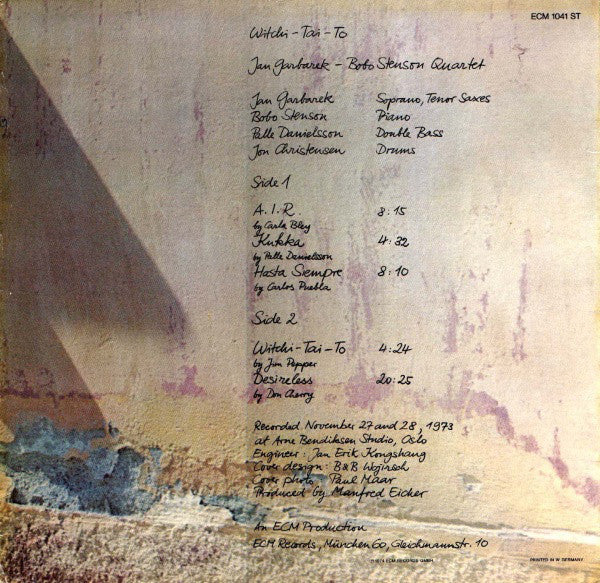 ECM 1041 ST
Witchi-Tai-To
Jan Garbarek - Bobo Stenson Quartet
Jan Garbarek Soprano, Tenor Saxes
Bobo Stenson Piano
Palle Danielsson Double Bass
Jon Christensen Drums
Side 1
A.I.R. 8:15
by Carla Bley
Kukka 4:32
by Palle Danielsson
Hasta Siempre 8:10
by Carlos Puebla
Side 2
Witchi-Tai-To 4:24
by Jim Pepper
Desireless 20:25
by Don Cherry
Recorded November 27 and 28, 1973
at Arne Bendiksen Studio, Oslo
Engineer: Jan Erik Kongshaug
Cover design: B&B Wojirsch
Cover photo: Paul Maar
Produced by Manfred Eicher
An ECM Production
ECM Records, München 60, Gleichmannstr. 10
℗ 1974 ECM RECORDS GMBH PRINTED IN W. GERMANY